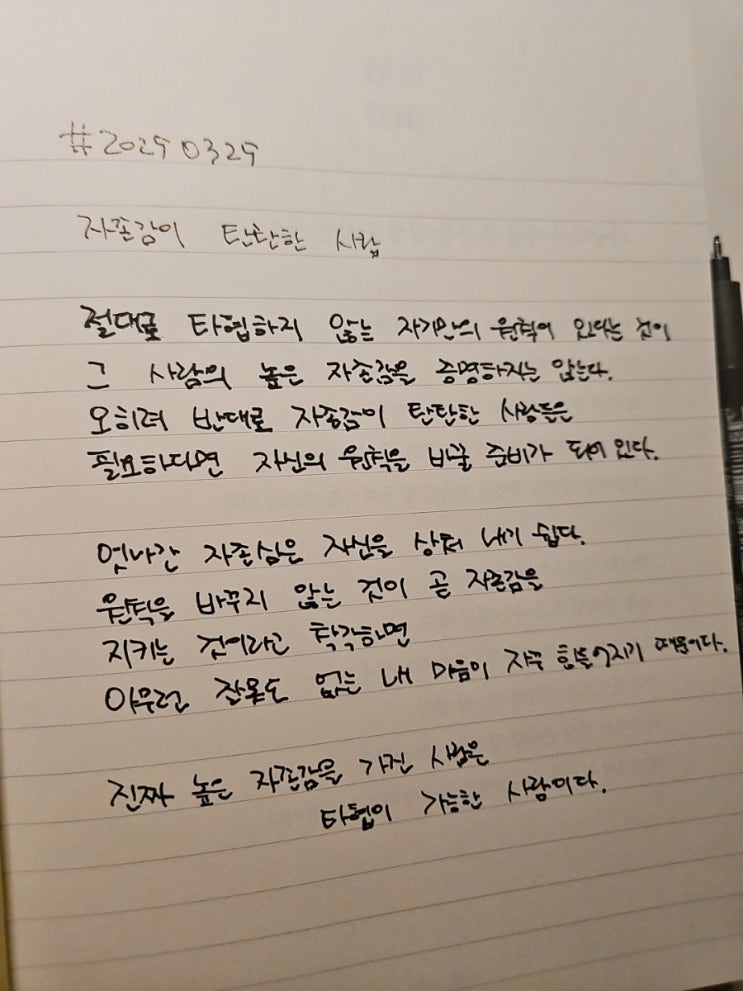 #20250325
자존감이 탄탄한 사람
절대로 타협하지 않는 자기만의 원칙이 있다는 것이
그 사람의 높은 자존감을 증명하지는 않는다.
오히려 반대로 자존감이 탄탄한 사람들은
필요하다면 자신의 원칙을 바꿀 준비가 되어 있다.
엇나간 자존심은 자신을 상처 내기 쉽다.
원칙을 바꾸지 않는 것이 곧 자존감을
지키는 것이라고 착각하면
아무런 잘못도 없는 내 마음이 자꾸 힘들어지기 때문이다.
진짜 높은 자존감을 가진 사람은
타협이 가능한 사람이다.